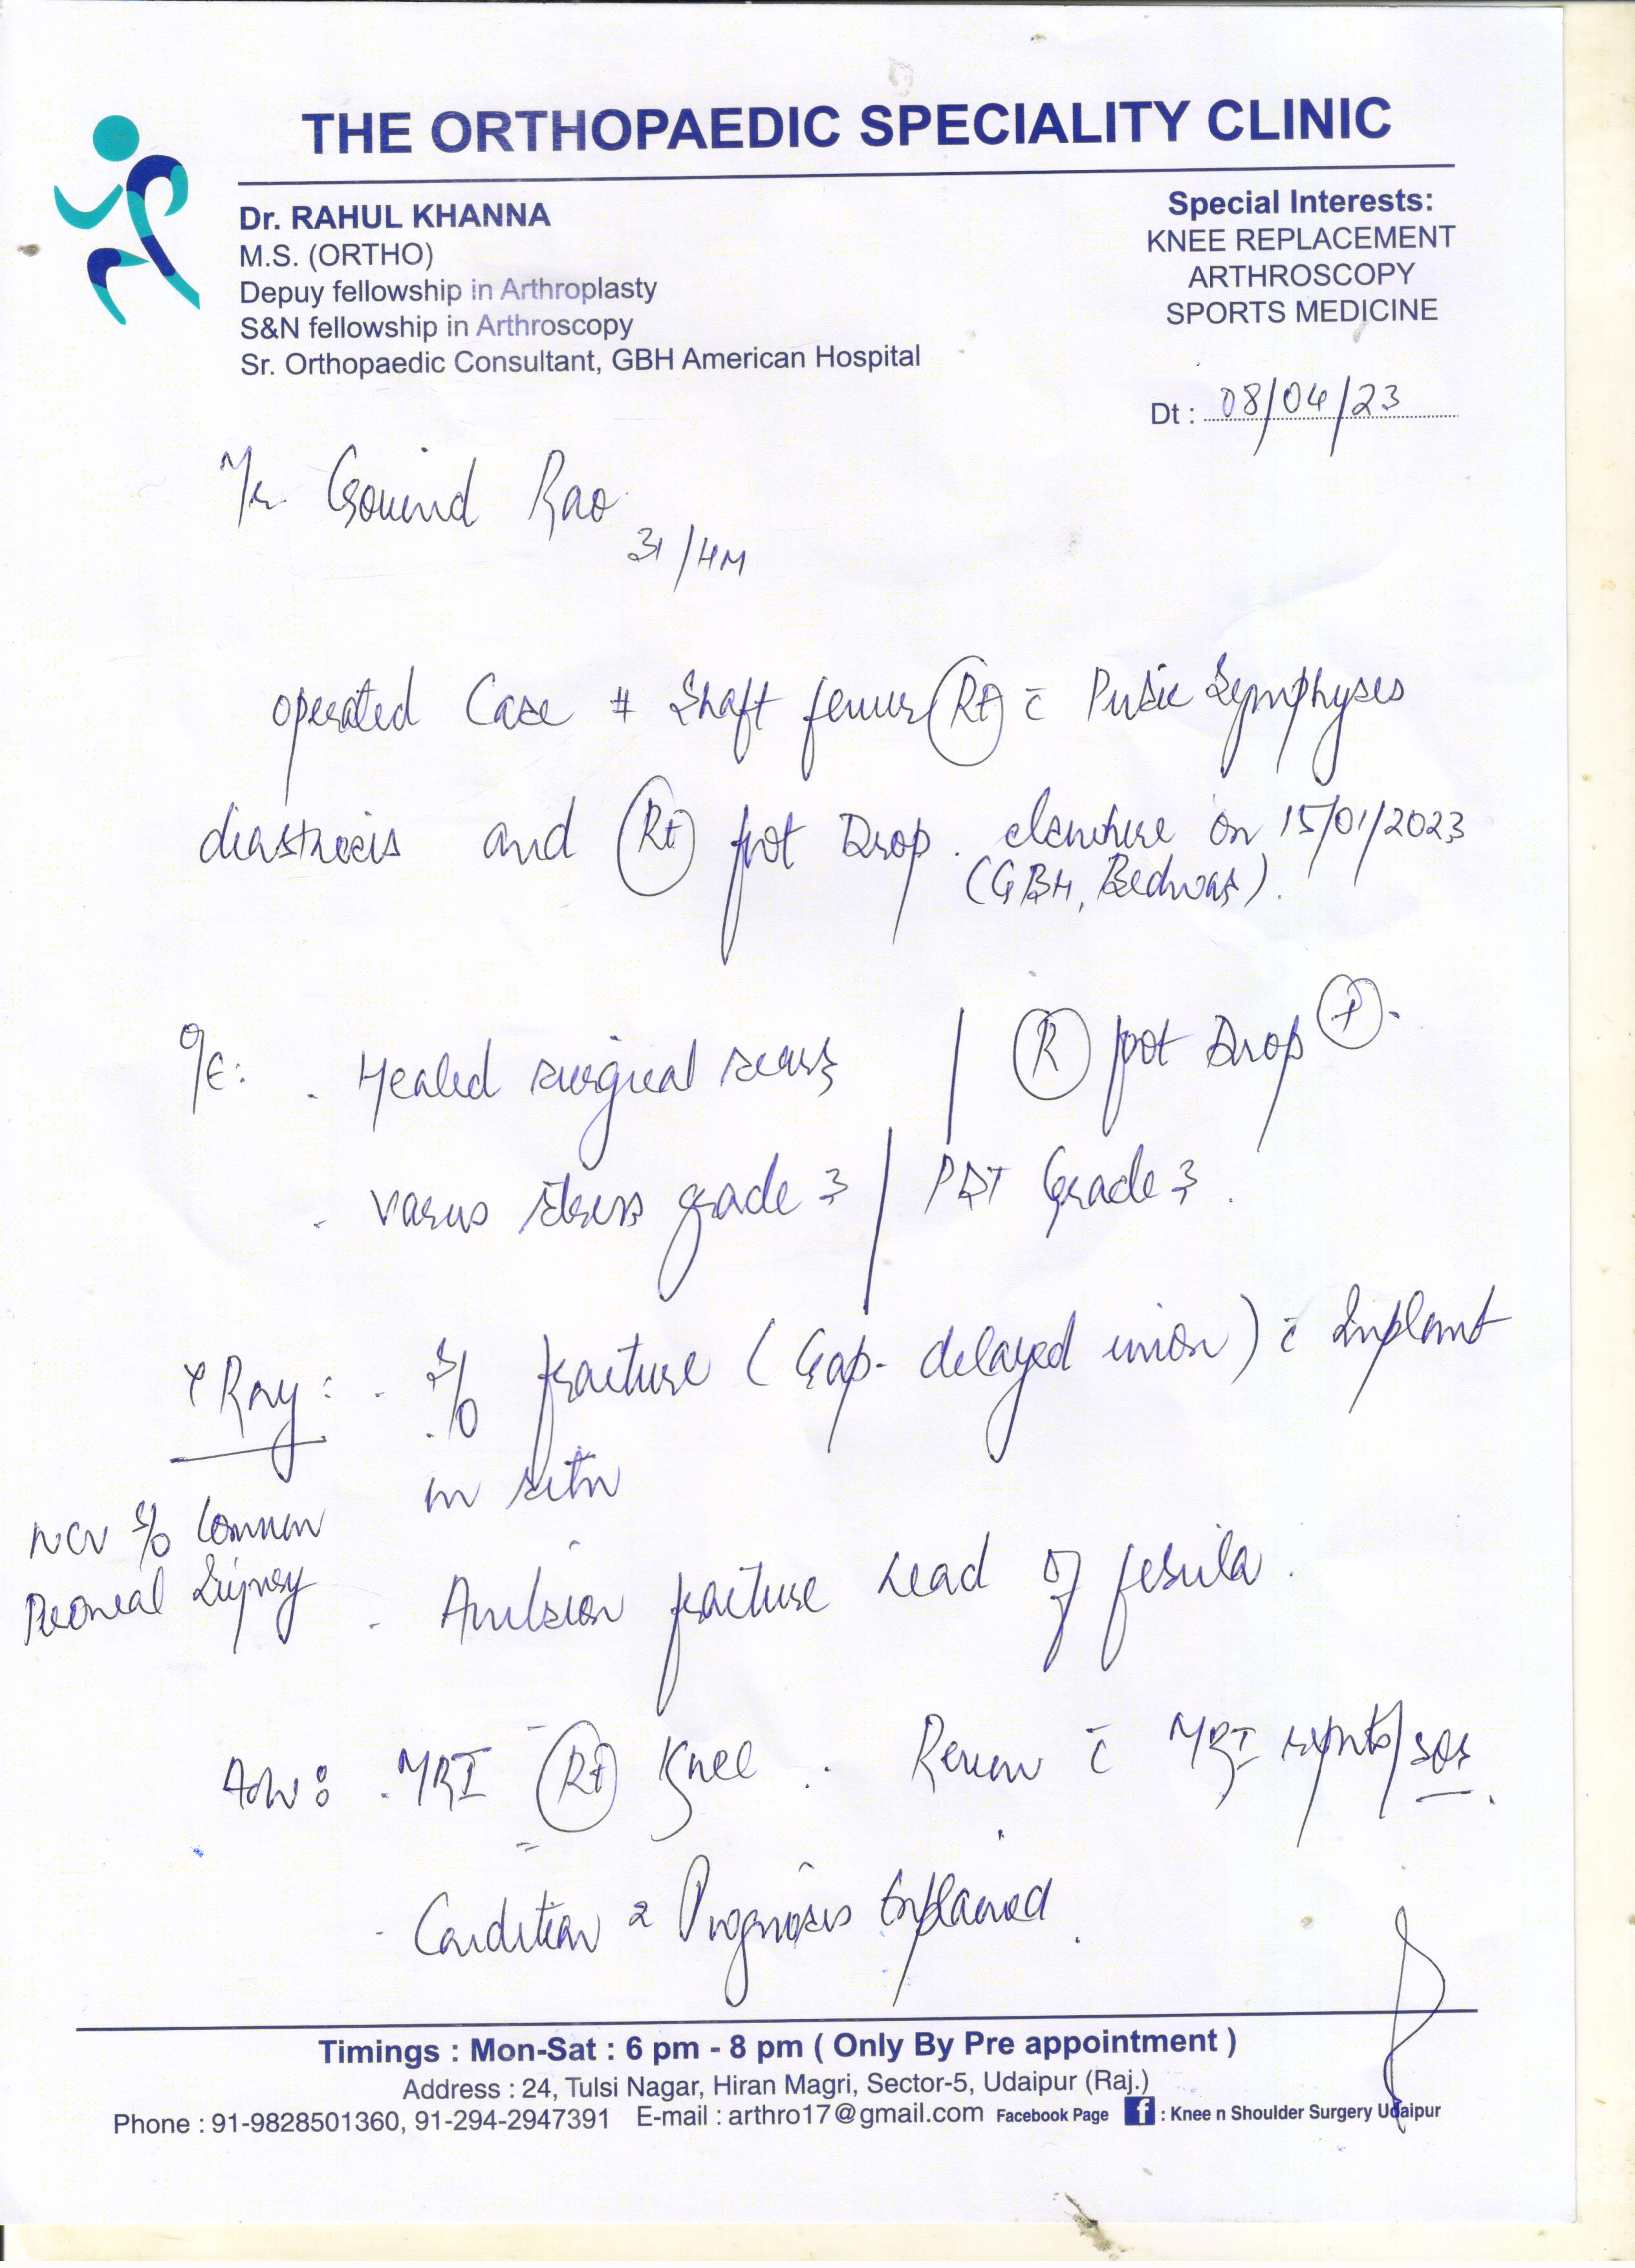 THE ORTHOPAEDIC SPECIALITY CLINIC
Dr. RAHUL KHANNA
M.S. (ORTHO)
Depuy fellowship in Arthroplasty
S&N fellowship in Arthroscopy
Sr. Orthopaedic Consultant, GBH American Hospital
Special Interests:
KNEE REPLACEMENT
ARTHROSCOPY
SPORTS MEDICINE
Dt : 08/04/23
Mr Govind Rao
31/
operated Case # Shaft femur Rt c̄ Pubic Symphyses
diastasis and Rt foot Drop. elsewhere on 15/01/2023
(GBH, Bedwas).
O/E: . Healed surgical scars | R foot Drop +.
. varus stress grade 3 | PDT Grade 3.
X Ray: . S/o fracture (Gap- delayed union) c̄ Implant
in situ
NCV S/o Common
Peroneal Injury
. Avulsion fracture head of fibula.
Adv: . MRI Rt Knee . Review c̄ MRI reports/sos.
- Condition & Prognosis Explained.
Timings : Mon-Sat : 6 pm - 8 pm ( Only By Pre appointment )
Address : 24, Tulsi Nagar, Hiran Magri, Sector-5, Udaipur (Raj.)
Phone : 91-9828501360, 91-294-2947391 E-mail : arthro17@gmail.com Facebook Page f : Knee n Shoulder Surgery Udaipur